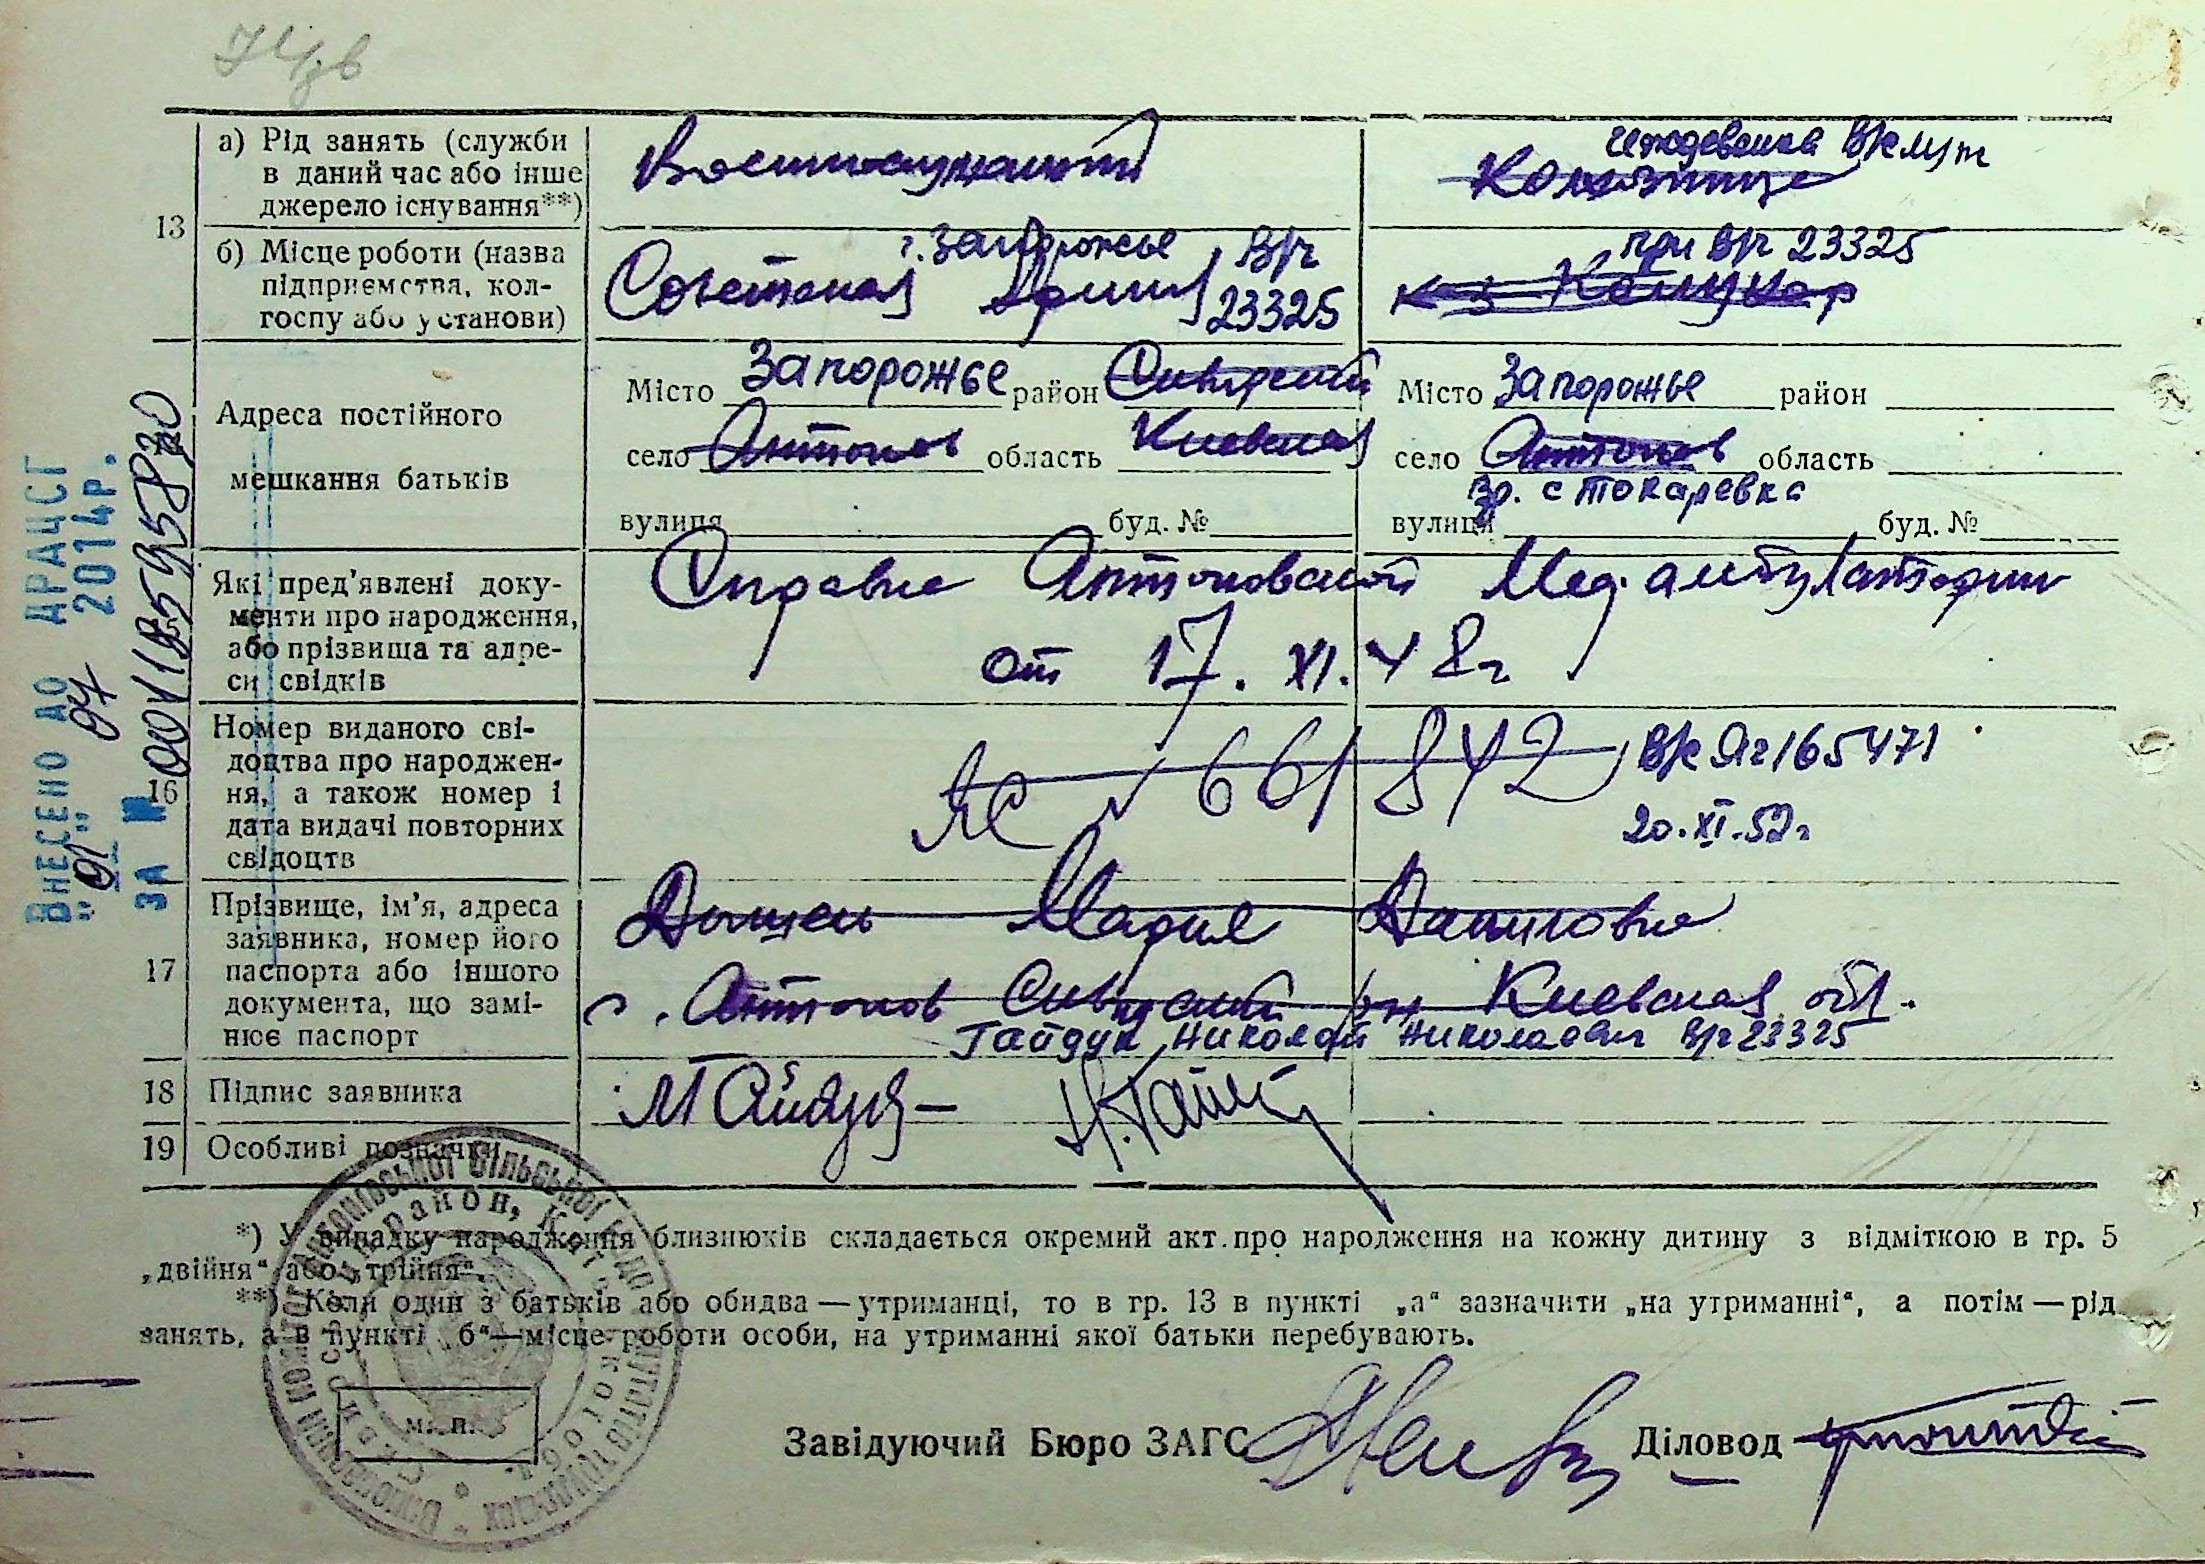 13
а) Рід занять (служби
в даний час або інше
джерело існування**)
Военнослужащий
Колхозница
иждевении
б) Місце роботи (назва
підприємства, кол-
госпу або установи)
г. Запорожье в/ч
Советская Армия 23325
при в/ч 23325
к-з
Адреса постійного
мешкання батьків
Місто Запорожье район Сквирский
село Антонов область Киевская
вулиця буд. №
Місто Запорожье район
село Антонов область
с Токаревка
вулиця буд. №
Які пред'явлені доку-
менти про народження,
або прізвища та адре-
си свідків
Справка Антоновской Мед. амбулатории
от 17. XI. 48 г
16
Номер виданого сві-
доцтва про народжен-
ня, а також номер і
дата видачі повторних
свідоцтв
№ 661842
165471
20.XI.52 г
17
Прізвище, ім'я, адреса
заявника, номер його
паспорта або іншого
документа, що замі-
нює паспорт
Мария Даниловна
с. Антонов Сквирский рн Киевская обл.
Гайдук Николай Николаевич в/ч 23325
18 Підпис заявника
МГайдук Н.Гайд
19 Особливі позначки
*) У випадку народження близнюків складається окремий акт про народження на кожну дитину з відміткою в гр. 5
„двійня“ або „трійня“.
**) Коли один з батьків або обидва — утриманці, то в гр. 13 в пункті „а“ зазначити „на утриманні“, а потім — рід
занять, а в пункті „б“ — місце роботи особи, на утриманні якої батьки перебувають.
М. П.
Завідуючий Бюро ЗАГС Діловод
Внесено до ДРАЦСГ
"01" 07 2014р.
за №